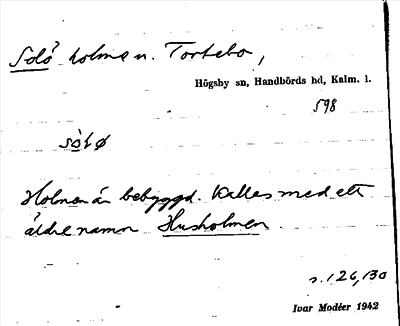 Solö holme n. Tortebo,
Högsby sn, Handbörds hd, Kalm. l.
598
sòlø
Holmen är bebyggd. Kallas med ett
äldre namn Husholmen.
s. 126, 130
Ivar Modéer 1942